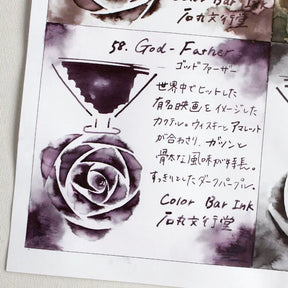 Color Bar Ink
石丸文行堂
58. God-Father
ゴッドファーザー
世界中でヒットした
有名映画をイメージした
カクテル。ウィスキーとアマレット
が合わさり、ガツンと
骨太な風味が特長。
すっきりとしたダークパープル。
Color Bar Ink
石丸文行堂